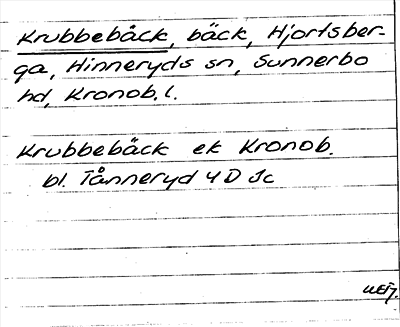 Krubbebäck, bäck, Hjortsber-
ga, Hinneryds sn, Sunnerbo
hd, Kronob. l.
Krubbebäck ek Kronob.
bl. Tånneryd 4D Jc